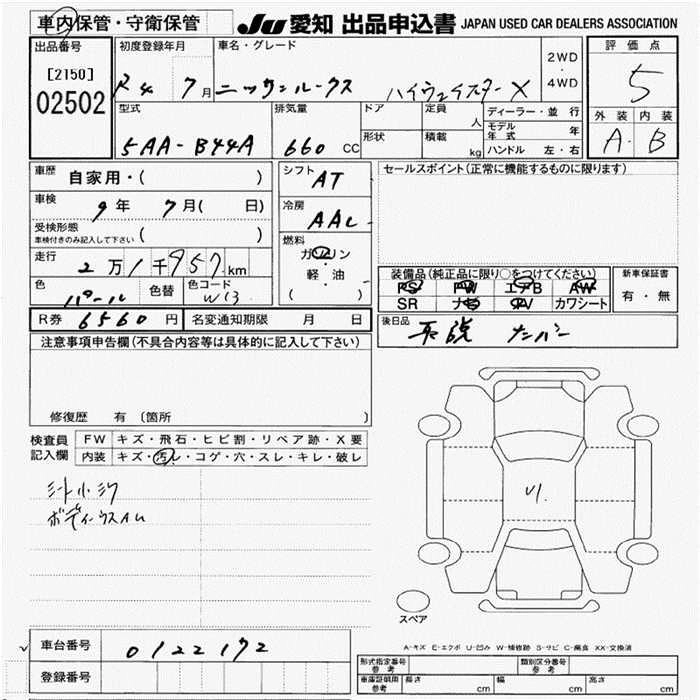 車内保管・守衛保管 JU 愛知 出品申込書 JAPAN USED CAR DEALERS ASSOCIATION
出品番号 初度登録年月 車名・グレード 評価点
[2150] R4 7月 ニッサンルークス ハイウェイスターX 2WD・4WD 5
02502 型式 排気量 ドア 定員 人 ディーラー・並行 外装 内装
5AA-B44A 660 cc 形状 積載 kg モデル年式 年 A B
ハンドル 左・右
車歴 自家用・( ) シフト AT セールスポイント(正常に機能するものに限ります)
車検 9年 7月( 日) 冷房 AAC
受検形態 車検付きのみ記入して下さい ( ) 燃料
走行 2万1千957km ガソリン
軽・油 装備品(純正品に限り○をつけてください) 新車保証書
色 パール 色替 色コード W13 ( ) PS PW エアB AW 有・無
SR ナビ TV カワシート
R券 6560円 名変通知期限 月 日 後日品 取説 ナンバー
注意事項申告欄(不具合内容等は具体的に記入して下さい)
修復歴 有 (箇所 )
検査員記入欄 FW キズ・飛石・ヒビ割・リペア跡・X要
内装 キズ・汚レ・コゲ・穴・スレ・キレ・破レ
シート小シワ
ボディーウスAU
U1.
スペア
A-キズ E-エクボ U-凹み W-補修跡 S-サビ C-腐食 XX-交換済
車台番号 0122172
登録番号 形式指定番号 参考 類別区分番号 参考
車庫証明用 参考 長さ cm 幅 cm 高さ cm